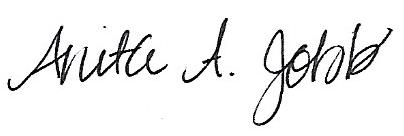 Anita A. Jobb